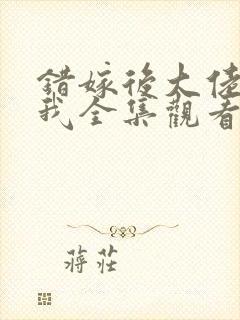 錯嫁後大佬
我全集觀看
蔣莊